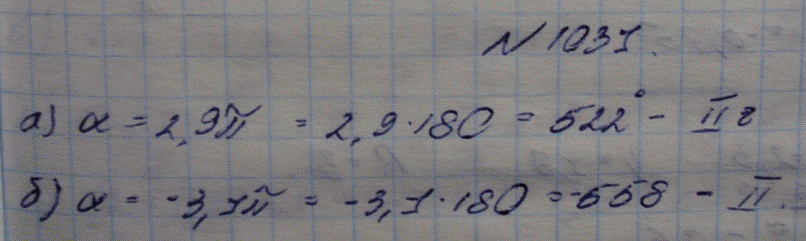 N 1031.
а) α = 2,9π = 2,9·180 = 522° - II г
б) α = -3,1π = -3,1·180 = -558 - II.